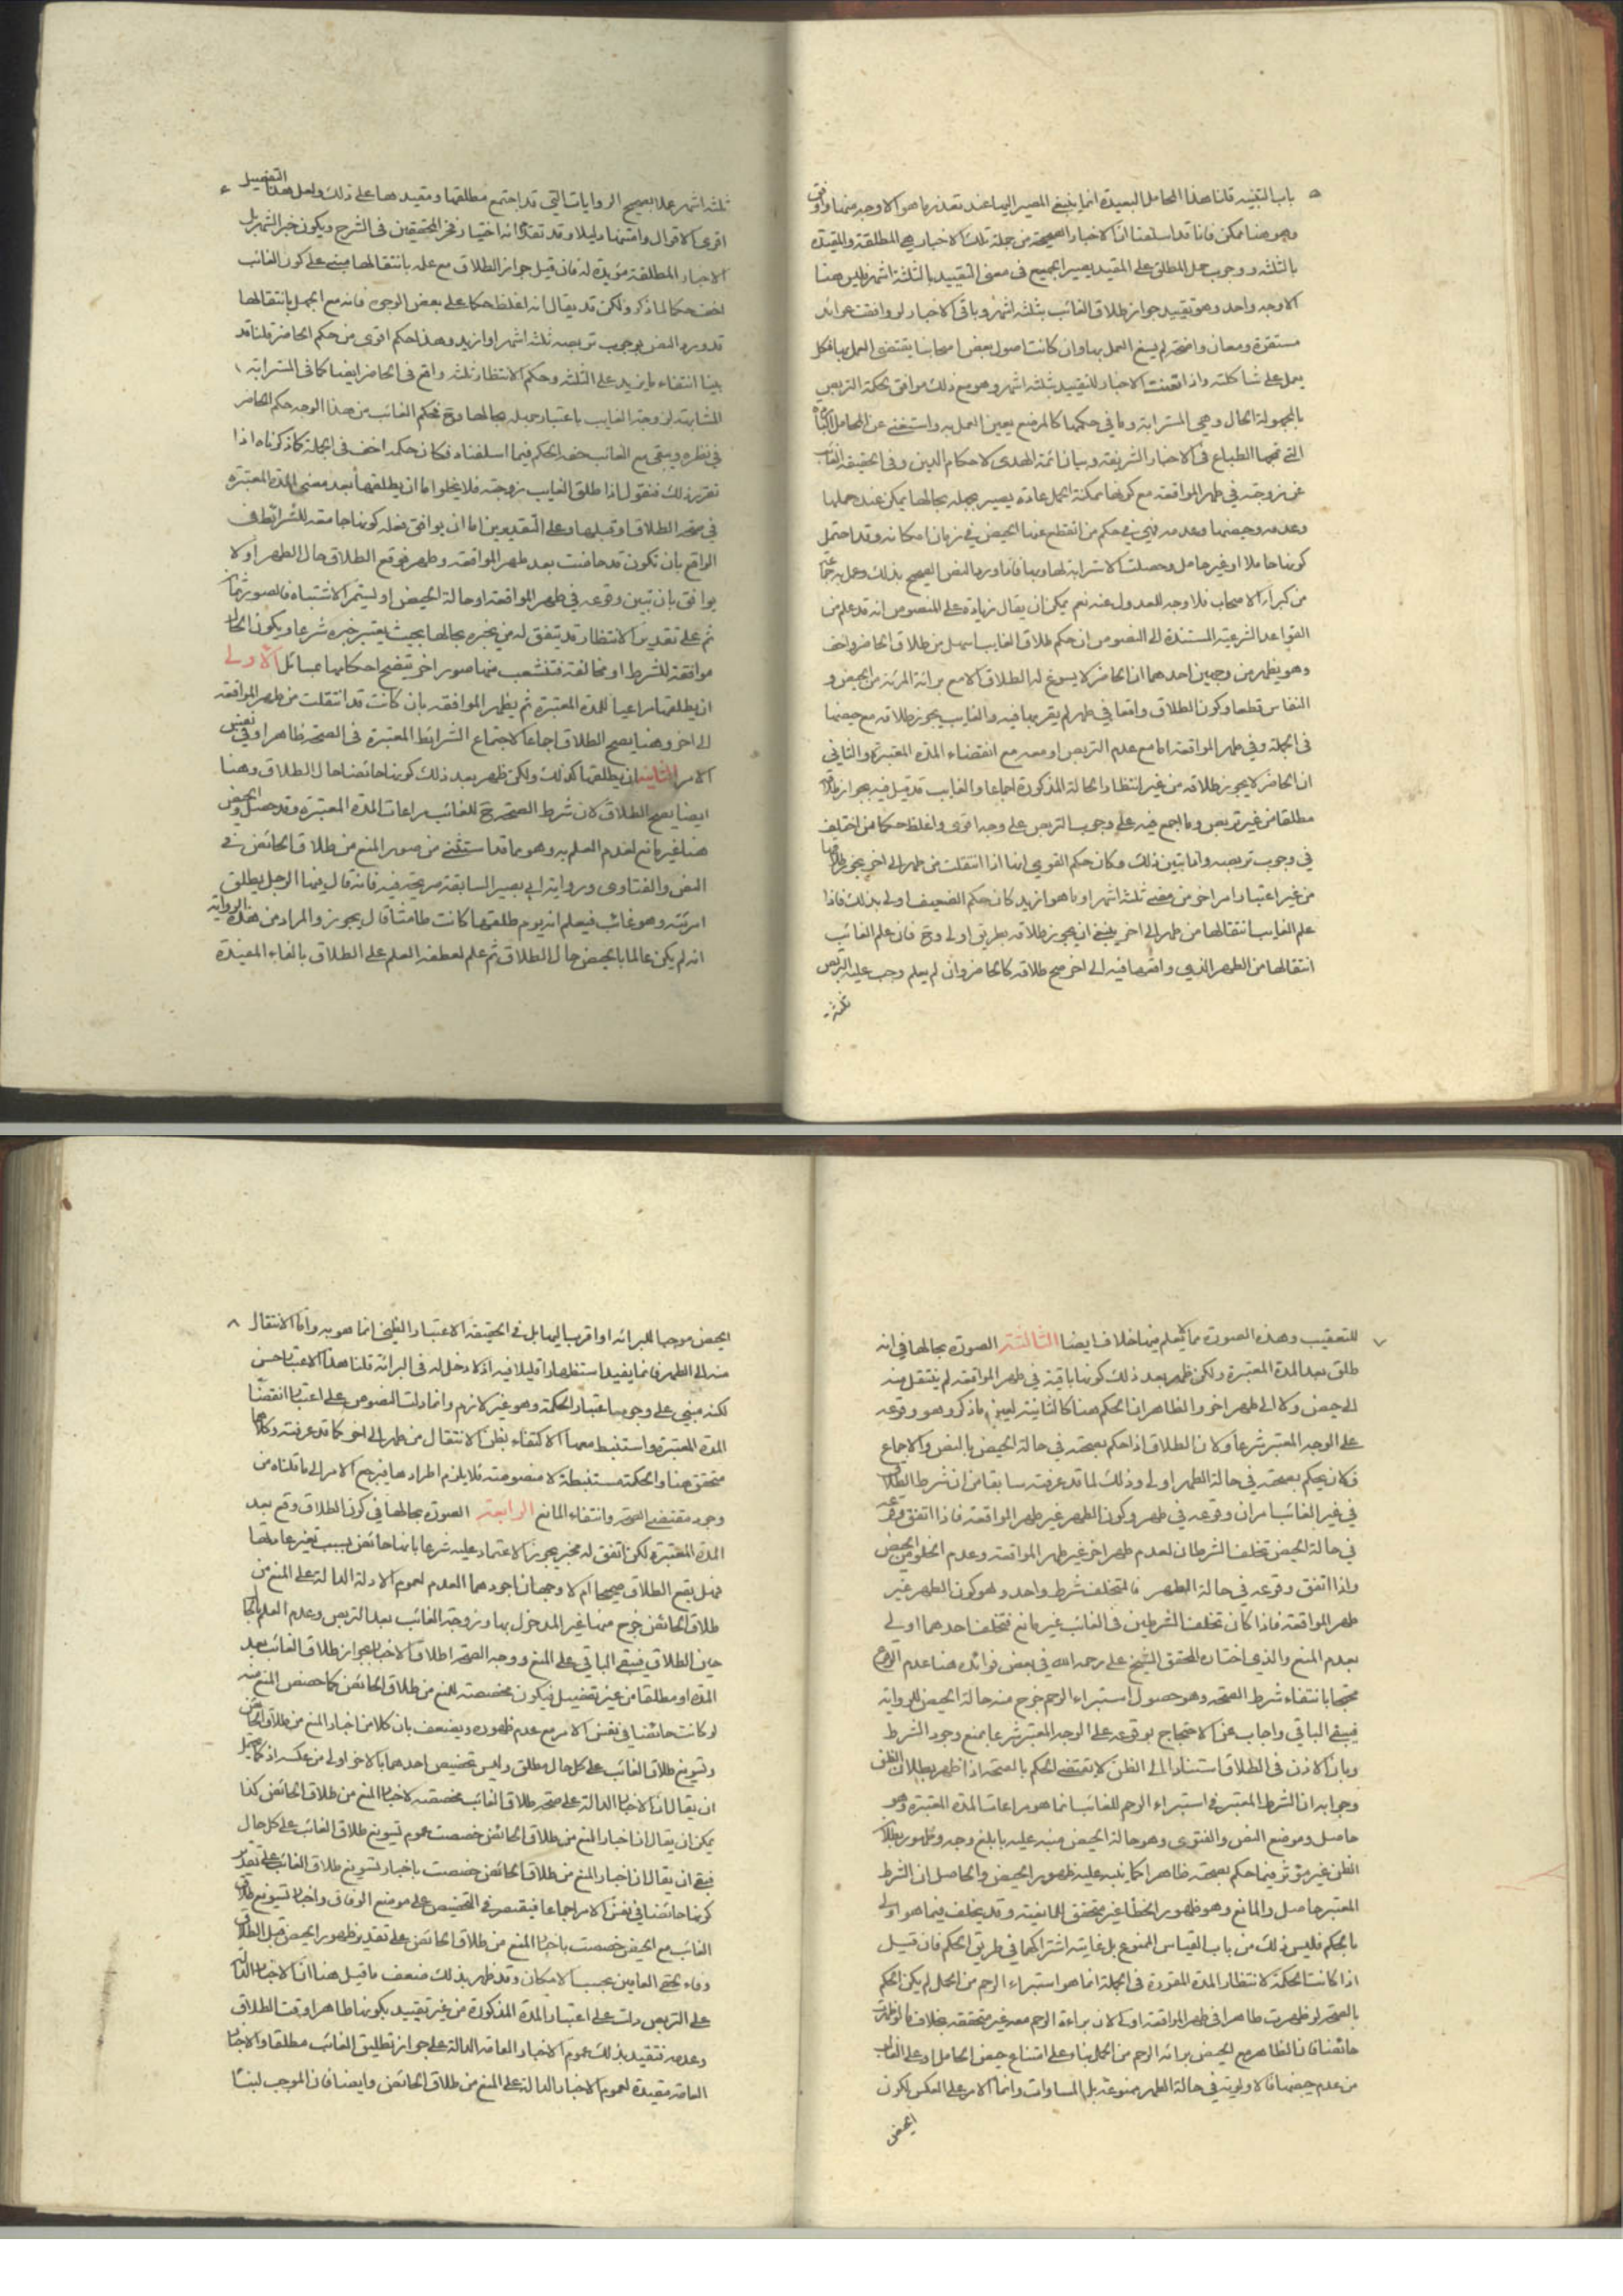 ٥ باب التنبيه قلنا هذا المحامل البعيدة انما ينبغي المصير اليها عند تعذر ما هو الاوجه منها واوفق
وهو هنا ممكن فانا قد اسلفنا ان الاخبار الصحيحة من جملة تلك الاخبار هي المطلقة والمقيدة
بالثلثة ووجوب حمل المطلق على المقيد يصير الجميع في معنى التقييد بالثلثة اشهر فليس هنا
الا وجه واحد وهو تقييد جواز طلاق الغائب بثلثة اشهر وباقي الاخبار لو وافقت
مستقرة ومعان واضحة لم يسغ العمل بها وان كانت اصول بعض اصحابنا يقتضي العمل بها فكل
يعمل على شاكلته واذا تعينت الاخبار للتقييد بثلثة اشهر وهو مع ذلك موافق لحكمة التربص
بالمجهولة الحال وهي المسترابة وما في حكمها كالمرضع يعين العمل به واستغنى عن المحامل
التي تمجها الطباع في الاخبار الشريفة وبيان ائمة الهدى لاحكام الدين وفي الحقيقة الغائب
عن زوجته في طهر المواقعة مع كونها ممكنة الحمل عادة يصير بجهله بحالها يمكن عنده حملها
وعدمه وحيضها وعدمه فهي في حكم من انقطع عنها الحيض في زمان امكانه وقد احتمل
كونها حاملا او غير حامل وحصلت الاسترابة لها وبها فاذا ورد النص الصحيح بذلك وعمل به جماعة
من كبراء الاصحاب فلا وجه للعدول عنه نعم يمكن ان يقال زيادة على المنصوص انه قد علم من
القواعد الشرعية المستندة الى النصوص ان حكم طلاق الغايب اسهل من طلاق الحاضر واخف
وهو يظهر من وجهين احدهما ان الحاضر لا يسوغ له الطلاق الا مع براءة المرئة من الحيض و
النفاس قطعا وكون الطلاق واقعا في طهر لم يقربها فيه والغايب يجوز طلاقه مع حيضها
في الجملة وفي طهر المواقعة اما مع عدم التربص او معه مع انقضاء المدة المعتبرة والثاني
ان الحاضر لا يجوز طلاقه من غير انتظار الحالة المذكورة اجماعا والغايب قد قيل فيه بجواز طلاقه
مطلقا من غير تربص وما اجمع فيه على وجوب التربص على وجه اقوى واغلظ حكما من اختلف
في وجوب تربصه واما تبين ذلك فكان حكم القوي انها اذا انتقلت من طهر الى اخر يجوز طلاقها
من غير اعتبار امر اخر من مضي ثلثة اشهر او ما هو ازيد كان حكم الضعيف اولى بذلك فاذا
علم الغايب انتقالها من طهر الى اخر ينبغي ان يجوز طلاقه بطريق اولى وح فان علم الغائب
انتقالها من الطهر الذي واقعها فيه الى اخر صح طلاقه كالحاضر وان لم يعلم وجب عليه التربص
ثلثة
ثلثة اشهر عملا بصحيح الروايات التي قد اجتمع مطلقها ومقيدها على ذلك ولعل هذا التفصيل
اقوى الاقوال وامتنها دليلا وقد تقدم انه اختيار فخر المحققين في الشرح ويكون خبر الشهر بل
الاخبار المطلقة مؤيدة له فان قيل جواز الطلاق مع علمه بانتقالها مبني على كون الغائب
اخف حكما لما ذكر ولكن قد يقال انه اغلظ حكما على بعض الوجوه فانه مع الجهل بانتقالها
قد ورد النص بوجوب تربصه ثلثة اشهر او ازيد وهذا حكم اقوى من حكم الحاضر قلنا قد
بينا انتفاء ما يزيد على الثلثة وحكم الانتظار ثلثة واقع في الحاضر ايضا كما في المسترابة
المشابهة لزوجة الغايب باعتبار جهله بحالها وح فحكم الغائب من هذا الوجه حكم الحاضر
في نظره ويبقى مع الغائب خفة الحكم فيما اسلفناه فكان حكمه اخف في الجملة كما ذكرناه اذا
تقرر ذلك فنقول اذا طلق الغايب زوجته فلا يخلوا اما ان يطلقها بعد مضي المدة المعتبرة
في صحة الطلاق او قبلها وعلى التقديرين اما ان يوافق فعله كونها جامعة للشرائط في
الواقع بان تكون قد حاضت بعد طهر المواقعة وطهر فوقع الطلاق حال الطهر او لا
يوافق بان تبين وقوعه في طهر المواقعة او حالة الحيض او ليستمر الاشتباه فالصور ثمان
ثم على تقدير الانتظار قد يتفق له من يخبره بحالها بحيث يعتبر خبره شرعا ويكون الحال
موافقة للشرط او مخالفة فتنشعب منها صور اخر تتضح احكامها بمسائل الاولى
ان يطلقها مراعيا للمدة المعتبرة ثم يظهر الموافقة بان كانت قد انتقلت من طهر المواقعة
الى اخر وهنا يصح الطلاق اجماعا لاجتماع الشرائط المعتبرة في الصحة ظاهرا وفي نفس
الامر الثانية ان يطلقها كذلك ولكن ظهر بعد ذلك كونها حائضا حال الطلاق وهنا
ايضا يصح الطلاق لان شرط الصحة ح للغائب مراعات المدة المعتبرة وقد حصل والحيض
هنا غير مانع لعدم العلم به وهو مما قد استثني من صور المنع من طلاق الحائض في
النص والفتاوى ورواية ابي بصير السابقة صريحة فيه فانه قال فيها الرجل يطلق
امرئته وهو غائب فيعلم انه يوم طلقها كانت طامثا قال يجوز والمراد من هذه الرواية
انه لم يكن عالما بالحيض حال الطلاق ثم علم لعطفه العلم على الطلاق بالفاء المفيدة
٧ للتعقيب وهذه الصورة مما لا يعلم فيها خلاف ايضا الثالثة الصورة بحالها في انه
طلق بعد المدة المعتبرة ولكن ظهر بعد ذلك كونها باقية في طهر المواقعة لم ينتقل منه
الى حيض ولا الى طهر اخر والظاهر ان الحكم هنا كالثانية لعين ما ذكر وهو وقوعه
على الوجه المعتبر شرعا ولان الطلاق اذا حكم بصحته في حالة الحيض بالنص والاجماع
فكان يحكم بصحته في حالة الطهر اولى وذلك لما قد عرفته سابقا من ان شرط الطلاق
في غير الغائب امران وقوعه في طهر وكون الطهر غير طهر المواقعة فاذا اتفق وقوعه
في حالة الحيض تخلف الشرطان لعدم طهر اخر غير طهر المواقعة وعدم الخلو من الحيض
واذا اتفق وقوعه في حالة الطهر فالتخلف شرط واحد وهو كون الطهر غير
طهر المواقعة فاذا كان تخلف الشرطين في الغائب غير مانع فتخلف احدهما اولى
بعدم المنع والذي اختاره المحقق الشيخ علي رحمه الله في بعض فوائده هنا عدم الوقوع
محتجا بانتفاء شرط الصحة وهو حصول استبراء الرحم خرج منه حالة الحيض للرواية
فيبقى الباقي واجاب عن الاحتجاج بوقوعه على الوجه المعتبر شرعا بمنع وجود الشرط
وبان الاذن في الطلاق استنادا الى الظن لا تقتضي الحكم بالصحة اذا ظهر بطلان الظن
وجوابه ان الشرط المعتبر في استبراء الرحم للغائب انما هو مراعات المدة المعتبرة وهو
حاصل وموضع النص والفتوى وهو حالة الحيض منبه عليه بابلغ وجه وظهور بطلان
الظن غير مؤثر فيما حكم بصحته ظاهرا كما ينبه عليه ظهور الحيض والحاصل ان الشرط
المعتبر حاصل والمانع وهو ظهور الخطأ غير متحقق المانعية وقد تخلف فيما هو اولى
بالحكم فليس ذلك من باب القياس الممنوع بل غايته اشتراكهما في طريق الحكم فان قيل
اذا كانت الحكمة لانتظار المدة المقررة في الجملة انما هو استبراء الرحم من الحمل لم يكن الحكم
بالصحة لو ظهرت طاهرا في طهر المواقعة اولى لان براءة الرحم معه غير متحققة بخلاف ما لو ظهرت
حائضا فان الظاهر مع الحيض براءة الرحم من الحمل بناء على امتناع حيض الحامل او على الغالب
من عدم حيضها فالاولوية في حالة الطهر ممنوعة بل المساوات وانما الامر على العكس لكون
الحيض
٨ الحيض موجبا للبرائة او اقرب اليها بل في الحقيقة الاعتبار الظني انما هو به واما الانتقال
منه الى الطهر فانما يفيد استظهارا قليلا فيه اذ لا دخل له في البرائة قلنا هذا الاعتبار حسن
لكنه مبني على وجوب اعتبار الحكمة وهو غير لازم وانما دلت النصوص على اعتبار انقضاء
المدة المعتبرة واستنبط معها الاكتفاء بظن الانتقال من طهر الى اخر كما قد عرفته وكلاهما
متحقق هنا والحكمة مستنبطة لا منصوصة فلا يلزم اطرادها فيرجع الامر الى ما قلناه من
وجود مقتضى الصحة وانتفاء المانع الرابعة الصورة بحالها في كون الطلاق وقع بعد
المدة المعتبرة لكن اتفق له مخبر يجوز الاعتماد عليه شرعا بانها حائض بسبب تغير عادتها
فهل يقع الطلاق صحيحا ام لا وجهان اجودهما العدم لعموم الادلة الدالة على المنع من
طلاق الحائض خرج منها غير المدخول بها وزوجة الغائب بعد التربص وعدم العلم بالحال
حين الطلاق فيبقى الباقي على المنع ووجه الصحة اطلاق الاخبار بجواز طلاق الغائب بعد
المدة او مطلقا من غير تفصيل فيكون مخصصة للمنع من طلاق الحائض كما خصص المنع منه
لو كانت حائضا في نفس الامر مع عدم ظهوره ويضعف بان كلا من اخبار المنع من طلاق الحائض
وتسويغ طلاق الغائب على كل حال مطلق وليس تخصيص احدهما بالاخر اولى من عكسه اذ كما يحتمل
ان يقال ان الاخبار الدالة على صحة طلاق الغائب مخصصة لاخبار المنع من طلاق الحائض كذا
يمكن ان يقال ان اخبار المنع من طلاق الحائض خصصت عموم تسويغ طلاق الغائب على كل حال
فبقي ان يقال ان اخبار المنع من طلاق الحائض خصصت باخبار تسويغ طلاق الغائب على تقدير
كونها حائضا في نفس الامر اجماعا فيقتصر في التخصيص على موضع الوفاق واخبار تسويغ طلاق
الغائب مع الحيض خصصت باخبار المنع من طلاق الحائض على تقدير ظهور الحيض قبل الطلاق
وفاء بحق العامين بحسب الامكان وقد ظهر بذلك ضعف ما قيل هنا ان الاخبار الدالة
على التربص دلت على اعتبار المدة المذكورة من غير تقييد بكونها طاهرا وقت الطلاق
وعدمه فتقيد بذلك عموم الاخبار العامة الدالة على جواز تطليق الغائب مطلقا والاخبار
العامة مقيدة لعموم الاخبار الدالة على المنع من طلاق الحائض وايضا فان الموجب